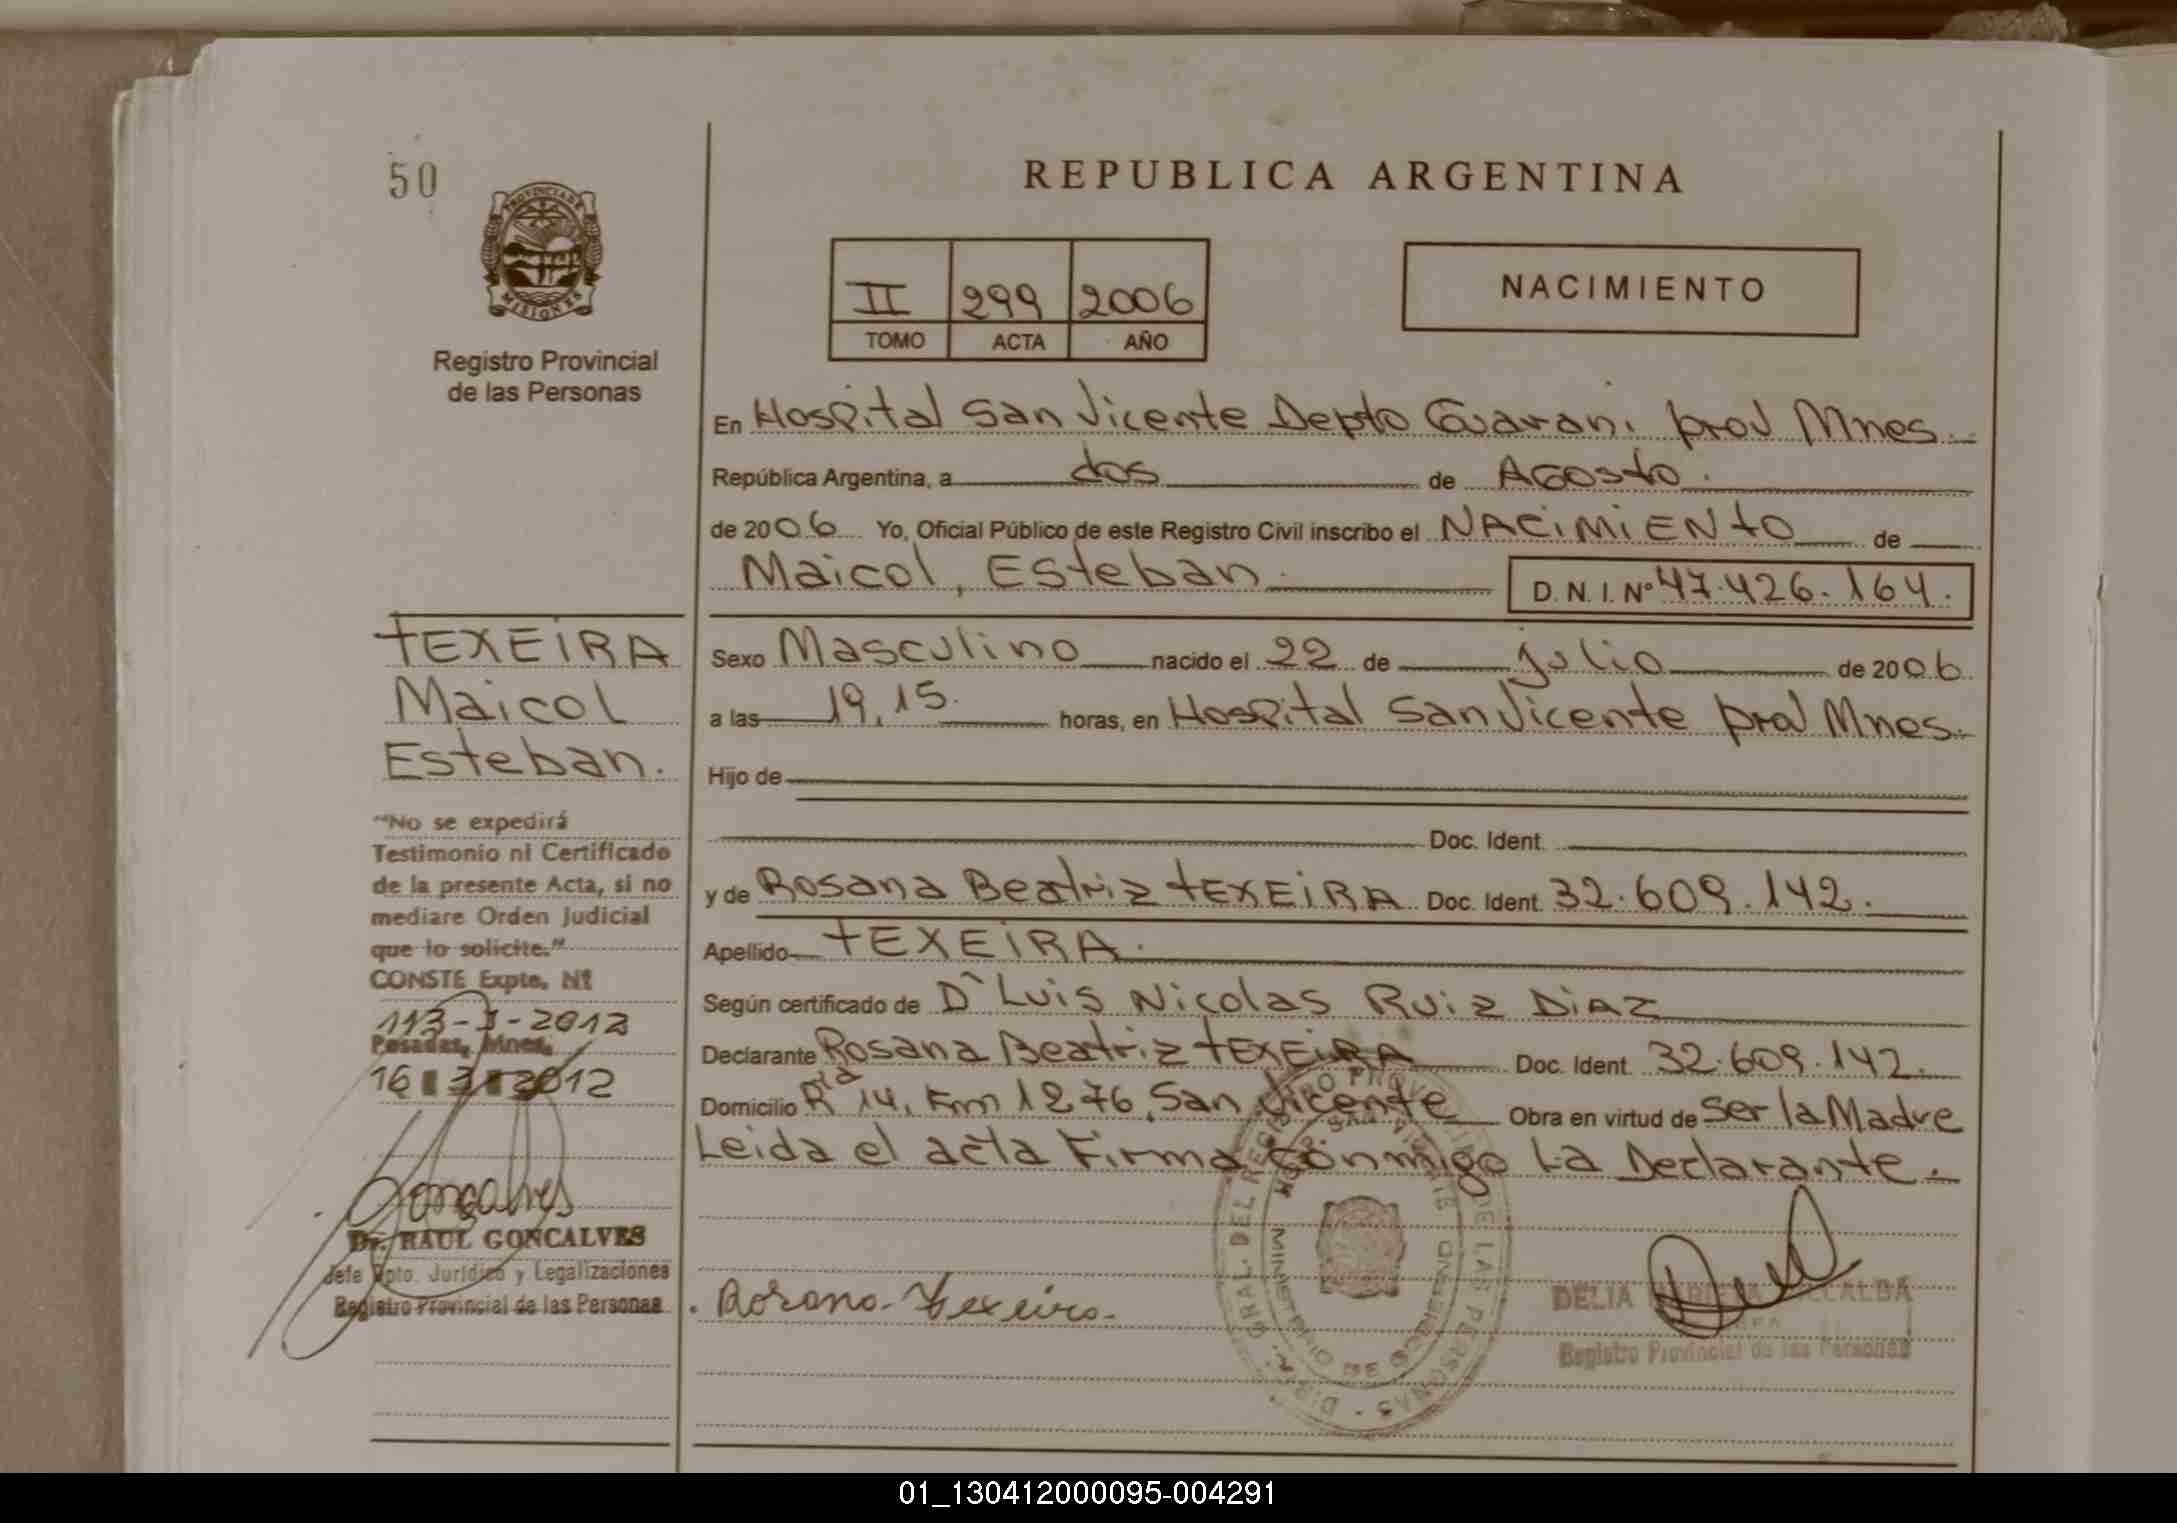 50
PROVINCIA DE
MISIONES
Registro Provincial
de las Personas
REPUBLICA ARGENTINA
II 299 2006
TOMO ACTA AÑO
NACIMIENTO
En Hospital San Vicente Depto Guarani prov Mnes.
República Argentina, a dos de Agosto.
de 2006 Yo, Oficial Público de este Registro Civil inscribo el NACIMIENTO de
Maicol, Esteban. D.N.I. Nº 47.426.164.
Sexo Masculino nacido el 22 de julio de 2006
a las 19,15. horas, en Hospital San Vicente prov Mnes.
Hijo de
Doc. Ident.
y de Rosana Beatriz TEXEIRA Doc. Ident. 32.609.142.
Apellido TEXEIRA.
Según certificado de Dr Luis Nicolas Ruiz Diaz
Declarante Rosana Beatriz TEXEIRA Doc. Ident. 32.609.142.
Domicilio Rta 14, Km 1276, San Vicente Obra en virtud de Ser la Madre
Leida el acta Firma Conmigo La Declarante.
TEXEIRA
Maicol
Esteban.
"No se expedirá
Testimonio ni Certificado
de la presente Acta, si no
mediare Orden Judicial
que lo solicite."
CONSTE Expte. Nº
113-J-2012
Posadas, Mnes.
16 3 2012
Goncalves
Dr. RAUL GONCALVES
Jefe Dpto. Jurídico y Legalizaciones
Registro Provincial de las Personas
Rosana Texeira
DIREC. GRAL. DEL REGISTRO PROVINCIAL DE LAS PERSONAS
HOSP. SAN VICENTE
DELIA VILLALBA
Registro Provincial de las Personas
01_130412000095-004291